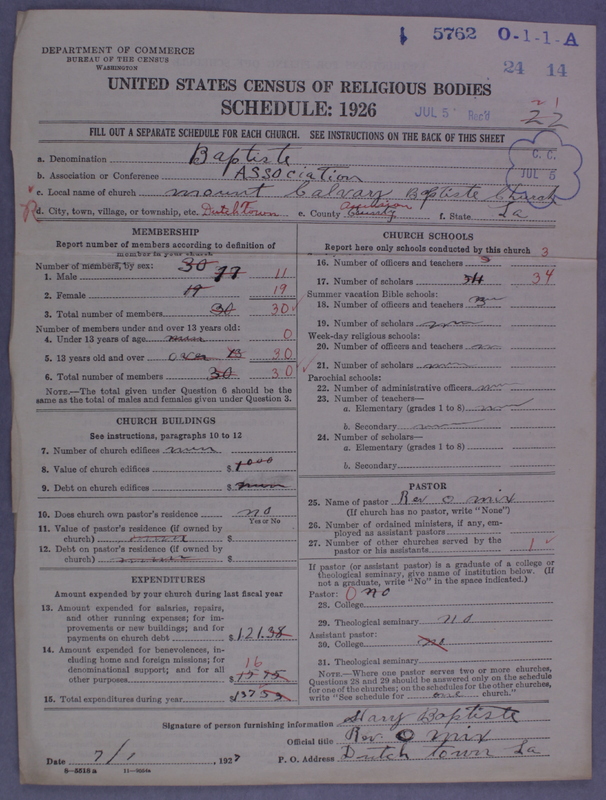 5762 O-1-1-A
24 14
DEPARTMENT OF COMMERCE
BUREAU OF THE CENSUS
WASHINGTON
UNITED STATES CENSUS OF RELIGIOUS BODIES
SCHEDULE: 1926
JUL 5 Rec'd
21
22
FILL OUT A SEPARATE SCHEDULE FOR EACH CHURCH. SEE INSTRUCTIONS ON THE BACK OF THIS SHEET
C. C.
JUL 6
a. Denomination Baptiste
b. Association or Conference Association
c. Local name of church mount Calvary Baptiste Church
d. City, town, village, or township, etc. Dutch Town e. County County f. State La
MEMBERSHIP
Report number of members according to definition of
member in your church
Number of members, by sex: 30
1. Male 11 11
2. Female 19 19
3. Total number of members 30 30
Number of members under and over 13 years old:
4. Under 13 years of age 0
5. 13 years old and over over 13 30
6. Total number of members 30 30
NOTE.—The total given under Question 6 should be
the same as the total of males and females given under Question 3.
CHURCH BUILDINGS
See instructions, paragraphs 10 to 12
7. Number of church edifices
8. Value of church edifices $ 1000
9. Debt on church edifices $
10. Does church own pastor's residence no
Yes or No
11. Value of pastor's residence (if owned by
church) $
12. Debt on pastor's residence (if owned by
church) $
EXPENDITURES
Amount expended by your church during last fiscal year
13. Amount expended for salaries, repairs,
and other running expenses; for im-
provements or new buildings; and for
payments on church debt $ 121.38
14. Amount expended for benevolences, in-
cluding home and foreign missions; for
denominational support; and for all
other purposes 16 $
15. Total expenditures during year $ 137
CHURCH SCHOOLS
Report here only schools conducted by this church
16. Number of officers and teachers 3 3
17. Number of scholars 34 34
Summer vacation Bible schools:
18. Number of officers and teachers
19. Number of scholars
Week-day religious schools:
20. Number of officers and teachers
21. Number of scholars
Parochial schools:
22. Number of administrative officers
23. Number of teachers—
a. Elementary (grades 1 to 8)
b. Secondary
24. Number of scholars—
a. Elementary (grades 1 to 8)
b. Secondary
PASTOR
25. Name of pastor Rev O mix
(If church has no pastor, write "None")
26. Number of ordained ministers, if any, em-
ployed as assistant pastors
27. Number of other churches served by the
pastor or his assistants 1
If pastor (or assistant pastor) is a graduate of a college or
theological seminary, give name of institution below. (If
not a graduate, write "No" in the space indicated.)
Pastor: O no
28. College
29. Theological seminary no
Assistant pastor:
30. College no
31. Theological seminary
NOTE.—Where one pastor serves two or more churches,
Questions 28 and 29 should be answered only on the schedule
for one of the churches; on the schedules for the other churches,
write "See schedule for one church."
Signature of person furnishing information Mary Baptiste
Official title Rev. O mix
Date 7/1, 1927 P. O. Address Dutch town La
8—5518 a 11—9554a